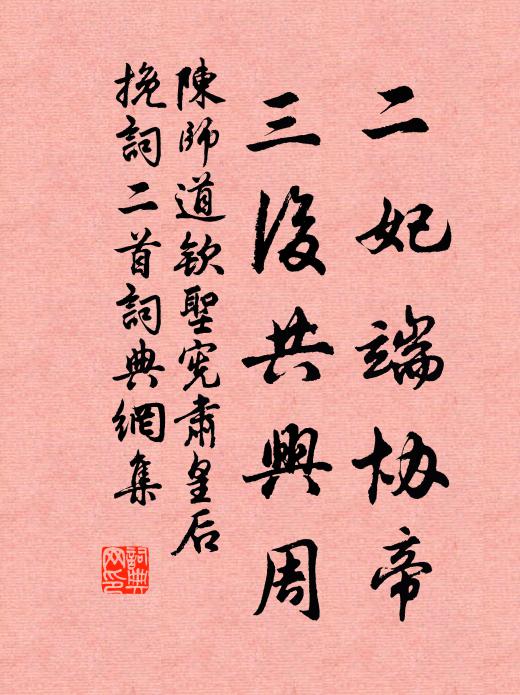 二妃端协帝
三後共興周
陳師道欽聖宪肅皇后
挽詞二首詞典網集
詞典網印